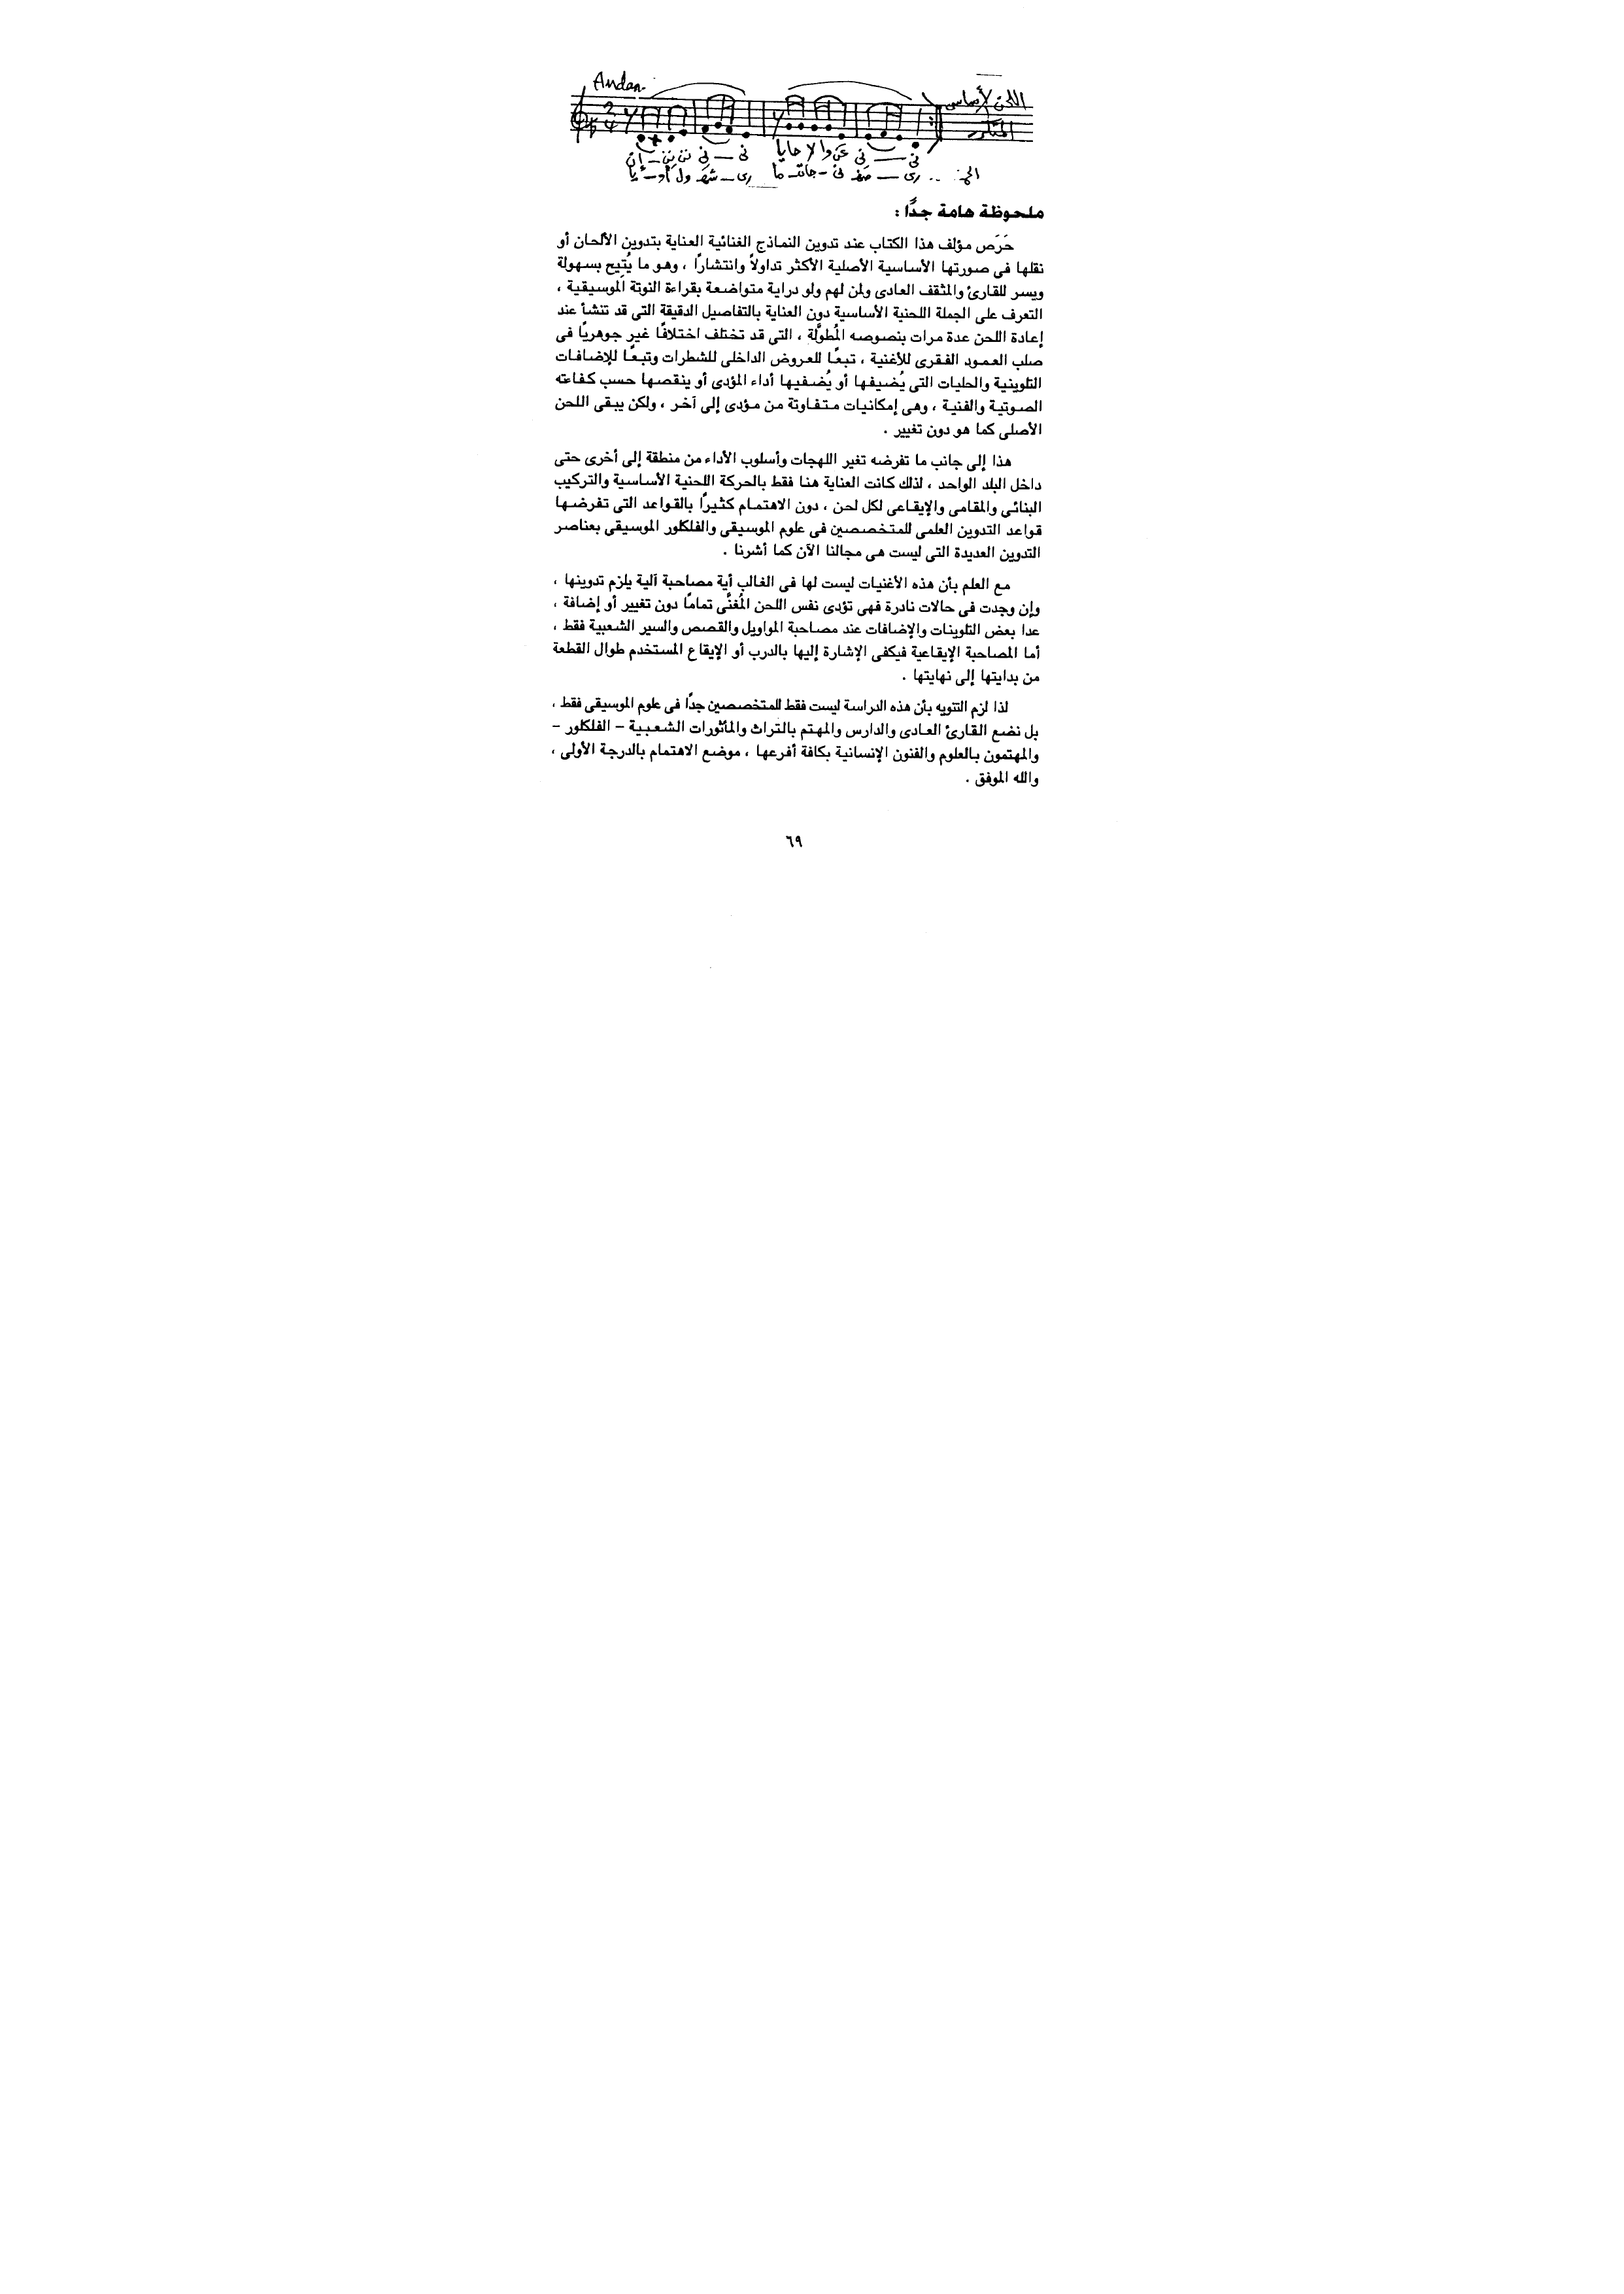 Andan.
اللحن الأساسى
المتكرر
ملحوظة هامة جدًا :
حَرَص مؤلف هذا الكتاب عند تدوين النماذج الغنائية العناية بتدوين الألحان أو
نقلها فى صورتها الأساسية الأصلية الأكثر تداولاً وانتشارًا ، وهو ما يُتيح بسهولة
ويسر للقارئ والمثقف العادى ولمن لهم ولو دراية متواضعة بقراءة النوتة الموسيقية ،
التعرف على الجملة اللحنية الأساسية دون العناية بالتفاصيل الدقيقة التى قد تنشأ عند
إعادة اللحن عدة مرات بنصوصه المُطوَّلة ، التى قد تختلف اختلافًا غير جوهريًا فى
صلب العمود الفقرى للأغنية ، تبعًا للعروض الداخلى للشطرات وتبعًا للإضافات
التلوينية والحليات التى يُضيفها أو يُضفيها أداء المؤدى أو ينقصها حسب كفاءته
الصوتية والفنية ، وهى إمكانيات متفاوتة من مؤدى إلى آخر ، ولكن يبقى اللحن
الأصلى كما هو دون تغيير .
هذا إلى جانب ما تفرضه تغير اللهجات وأسلوب الأداء من منطقة إلى أخرى حتى
داخل البلد الواحد ، لذلك كانت العناية هنا فقط بالحركة اللحنية الأساسية والتركيب
البنائى والمقامى والإيقاعى لكل لحن ، دون الاهتمام كثيرًا بالقواعد التى تفرضها
قواعد التدوين العلمى للمتخصصين فى علوم الموسيقى والفلكلور الموسيقى بعناصر
التدوين العديدة التى ليست هى مجالنا الآن كما أشرنا .
مع العلم بأن هذه الأغنيات ليست لها فى الغالب أية مصاحبة آلية يلزم تدوينها ،
وإن وجدت فى حالات نادرة فهى تؤدى نفس اللحن المُغنَّى تمامًا دون تغيير أو إضافة ،
عدا بعض التلوينات والإضافات عند مصاحبة المواويل والقصص والسير الشعبية فقط ،
أما المصاحبة الإيقاعية فيكفى الإشارة إليها بالدرب أو الإيقاع المستخدم طوال القطعة
من بدايتها إلى نهايتها .
لذا لزم التنويه بأن هذه الدراسة ليست فقط للمتخصصين جدًا فى علوم الموسيقى فقط ،
بل نضع القارئ العادى والدارس والمهتم بالتراث والمأثورات الشعبية – الفلكلور –
والمهتمون بالعلوم والفنون الإنسانية بكافة أفرعها ، موضع الاهتمام بالدرجة الأولى ،
والله الموفق .
٦٩